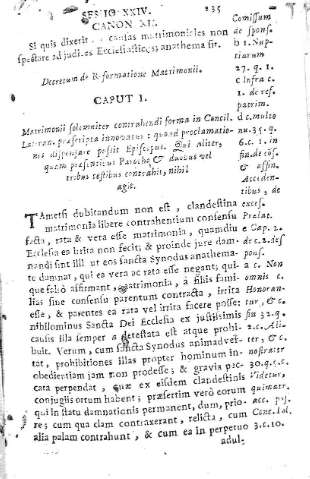 SESIO XXIV. 235
CANON XII.
SI quis dixerit causas matrimoniales non
spectare ad judices Ecclesiasticos, anathema sit.
Decretum de Reformatione Matrimonii.
CAPUT I.
Matrimonii solemniter contrahendi forma in Concil.
Lateran. præscripta innovatur: quoad proclamatio-
nes dispensare possit Episcopus. Qui aliter,
quam præsentibus Parocho & duobus vel
tribus testibus contrahit, nihil
agit.
TAmetsi dubitandum non est, clandestina
matrimonia libero contrahentium consensu
facta, rata & vera esse matrimonia, quamdiu
Ecclesia ea irrita non fecit; & proinde jure dam-
nandi sint illi ut eos sancta Synodus anathema-
te damnat, qui ea vera ac rata esse negant; qui-
que falso affirmant, matrimonia, à filiis fami-
lias sine consensu parentum contracta, irrita
esse, & parentes ea rata vel irrita facere posse:
nihilominus Sancta Dei Ecclesia ex justissimis
causis illa semper detestata est atque prohi-
buit. Verum, cum sancta Synodus animadver-
tat, prohibitiones illas propter hominum in-
obedientiam jam non prodesse; & gravia pec-
cata perpendat, quæ ex eisdem clandestinis
conjugiis ortum habent; præsertim verò eorum
qui in statu damnationis permanent, dum, prio-
re; cum qua clam contraxerant, relicta, cum
alia palam contrahunt, & cum ea in perpetuo
adul-
Comissum
de spons.
b 1. Sup-
tiarum
27. q. 1.
c Infra c.
1. de res.
patrim.
d c. multo
nu. 35. q.
6. c. 1. in
fin. de cōs.
& affin.
Acciden-
tibus, de
exces.
Prelat.
e Cap. 2.
de c. 2. des
pons.
a c. Non
omnis c.
Honoran-
tur, & c.
fin 32. q.
2. c. Ali-
ter, & c.
nostrates
30. q. 5. c.
Videtur,
qui matr.
acc. pos.
Conc. Lol.
3. c. 10.